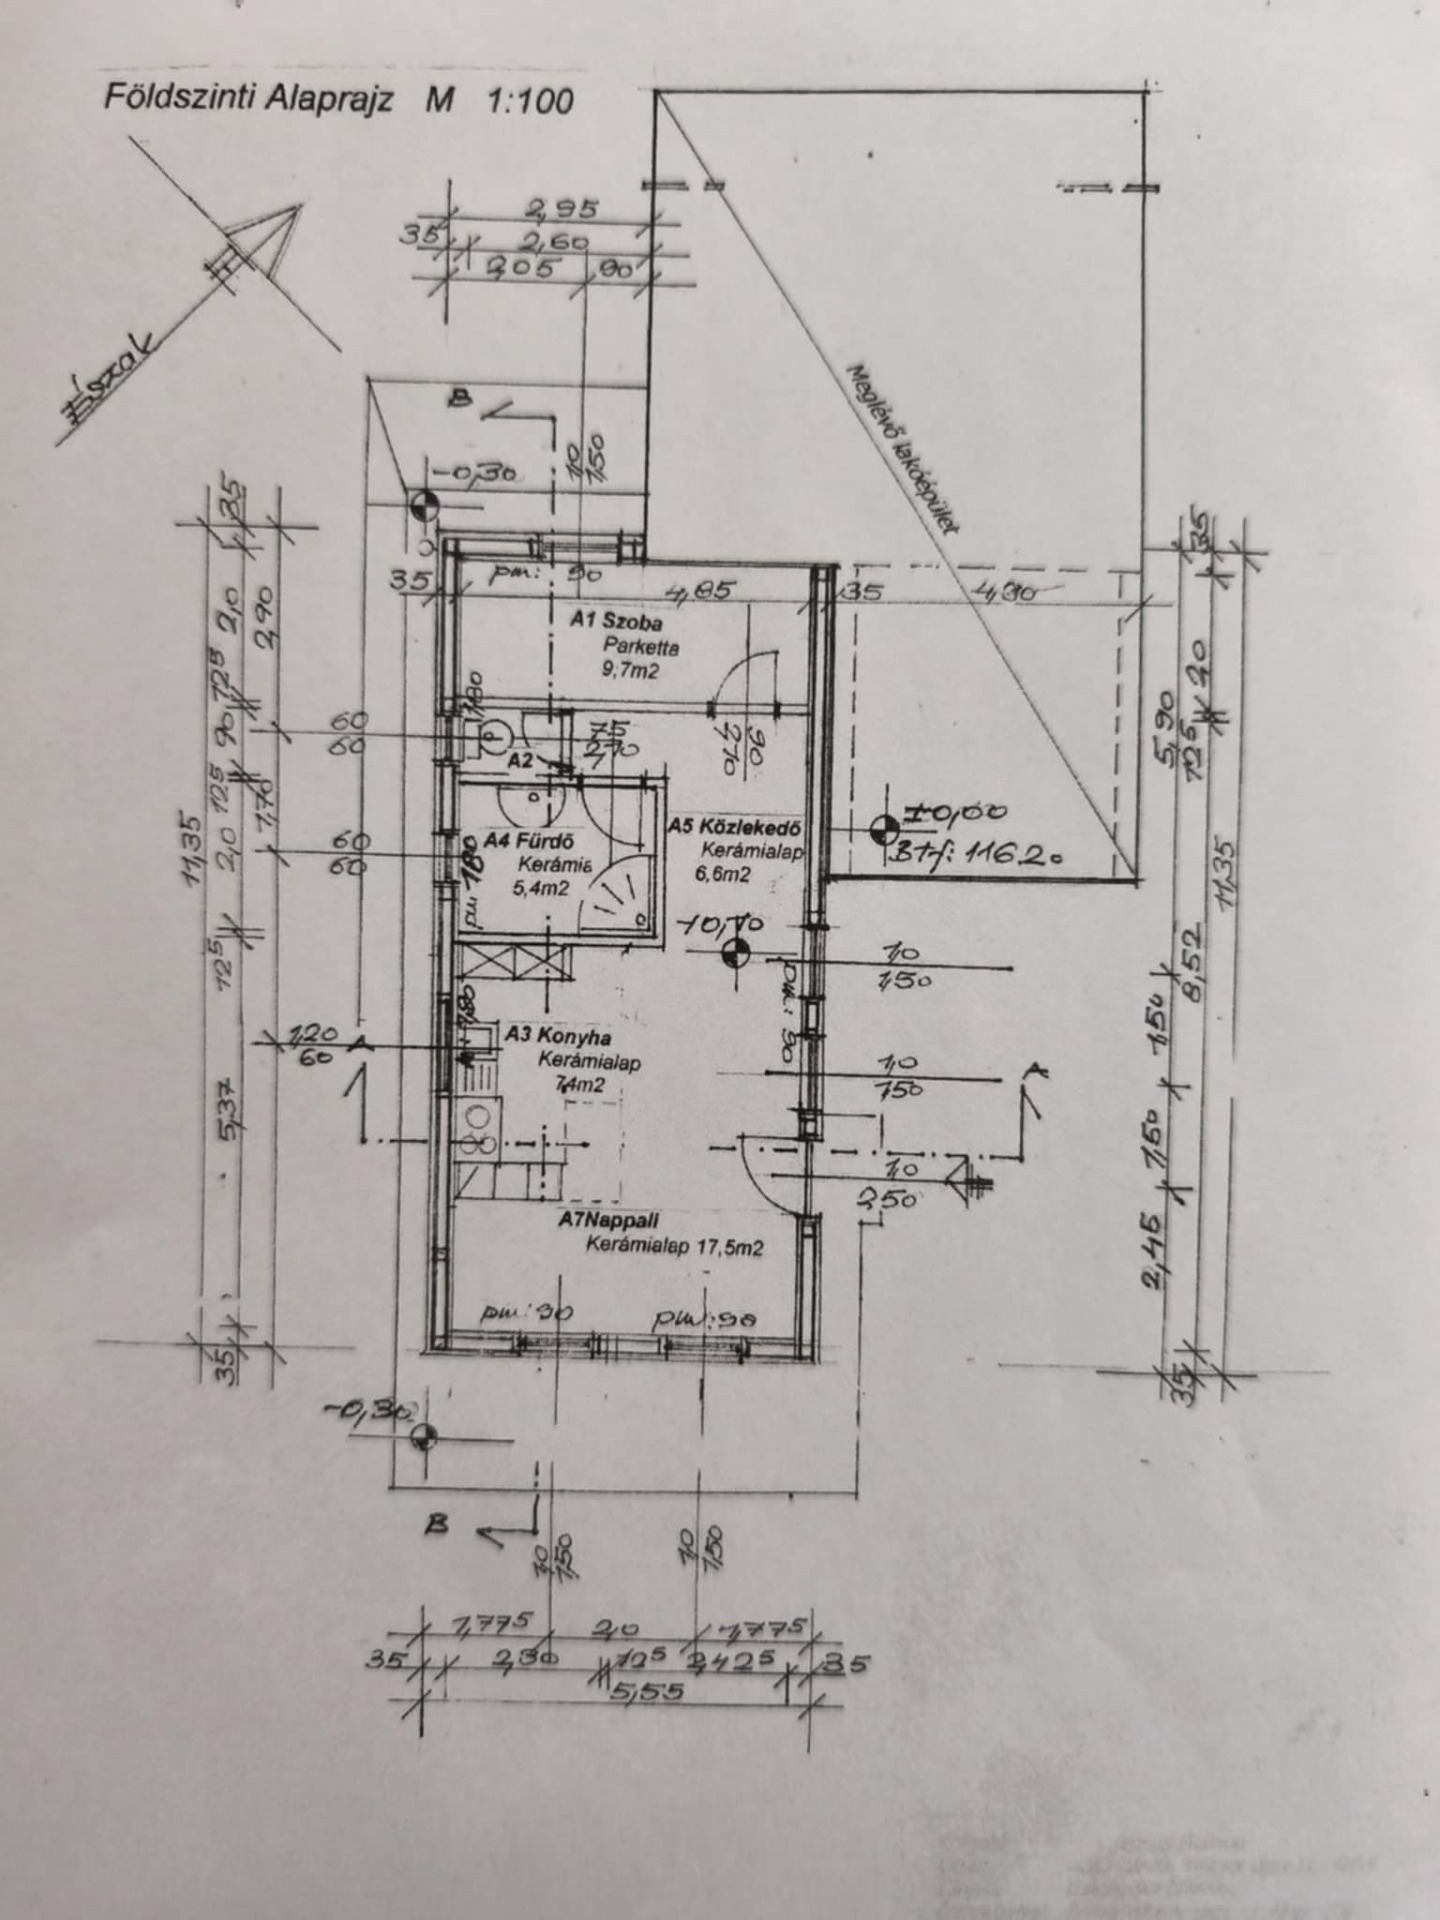 Földszinti Alaprajz M 1:100
2,95
35 2,60
2,05 90
Észak
B
-0,30
1,0
1,50
Meglévő lakóépület
35
pm: 90
35 4,85 35 4,30
A1 Szoba
Parketta
9,7m2
35
2,0
2,90
125
90
125
1,70
2,0
11,35
125
5,37
35
60
60
60
60
1,20
60
A
1,80
75
2,10
A2
90
2,10
A4 Fürdő
Kerámia
5,4m2
pm 180
A5 Közlekedő
Kerámialap
6,6m2
±0,00
Btf: 116.20
+0,10
1,0
1,50
pm: 90
1,80
A3 Konyha
Kerámialap
7,4m2
1,0
1,50
A
1,0
2,50
A7Nappali
Kerámialap 17,5m2
pm: 90 pm: 90
35
5,90
125
20
11,35
8,52
1,50
1,50
2,45
35
-0,30
B
1,0
1,50
1,0
1,50
1,775 2,0 1,775
35 2,30 125 2,425 35
5,55